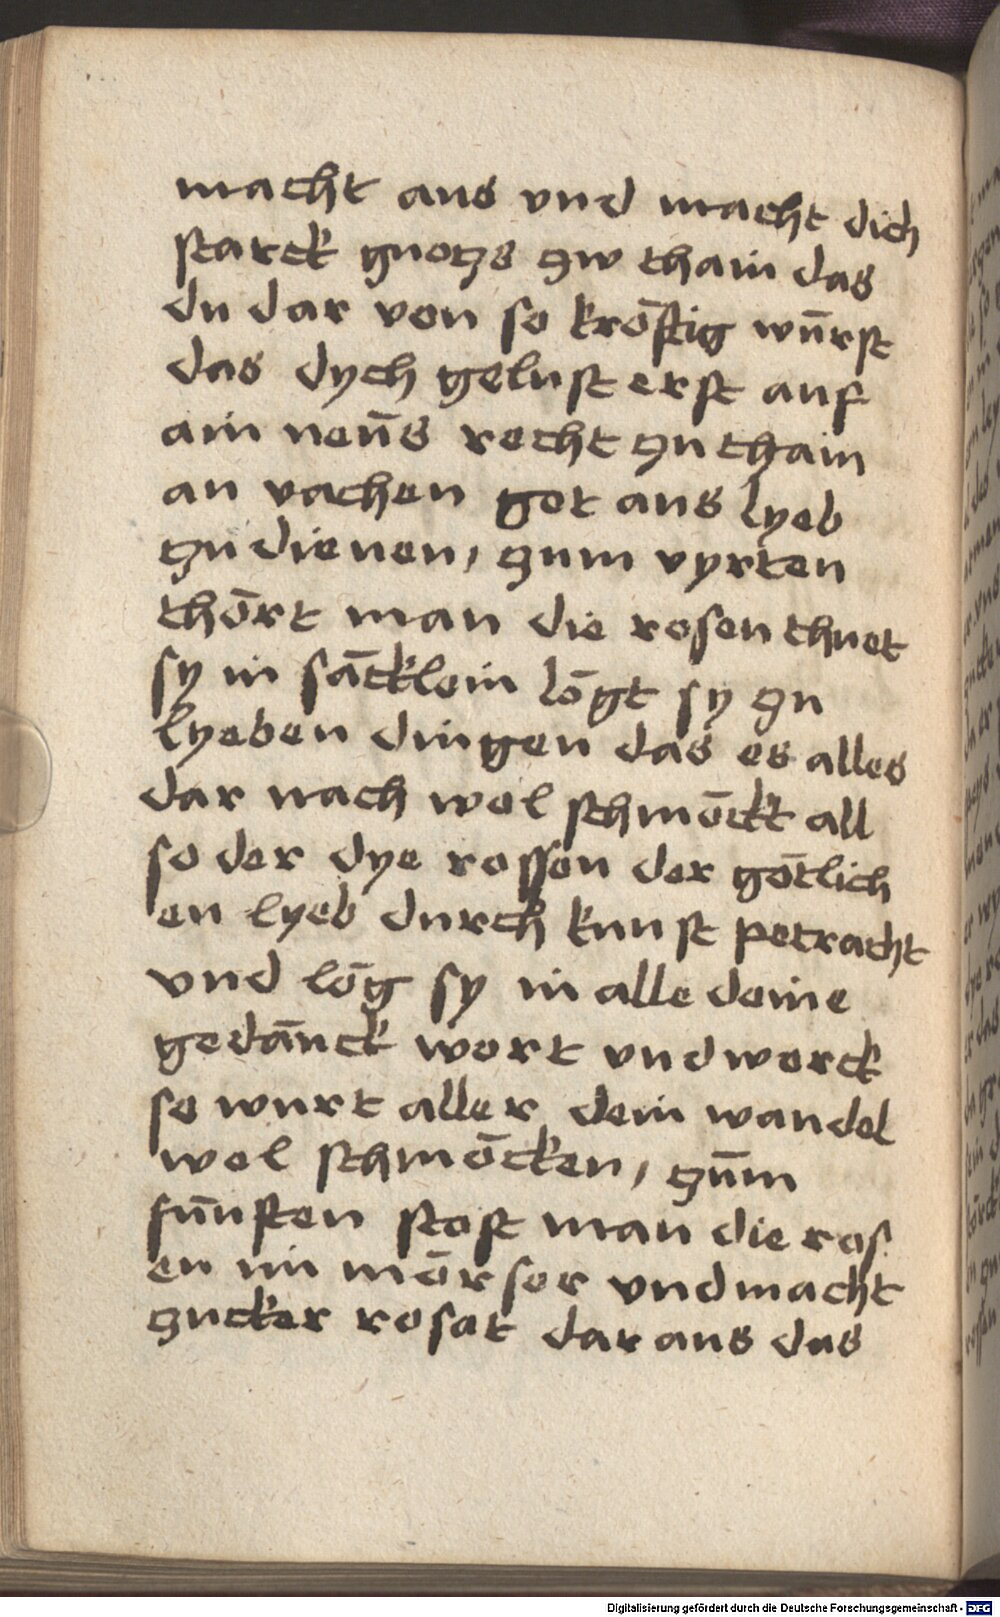 macht aus vnd macht dich
starck guotzs zw thain das
du dar von so krōftig wūrst
das dych gelust erst auf
ain neūs recht zu thain
an vachen got aus lyeb
zu dienen, zum vyrten
thōrt man die rosen thuet
sy in sācklein lōgt sy zu
lyeben dingen das es alles
dar nach wol schmōckt all
so der dye rossen der gōtlich
en lyeb durch kunst petracht
vnd lōg sy in alle deine
gedānck wort vnd werck
so wurt aller dein wandel
wol schmōcken, zūm
fūnften stost man die ros
en im mōrser vnd macht
zucker rosat dar aus das
Digitalisierung gefördert durch die Deutsche Forschungsgemeinschaft - DFG